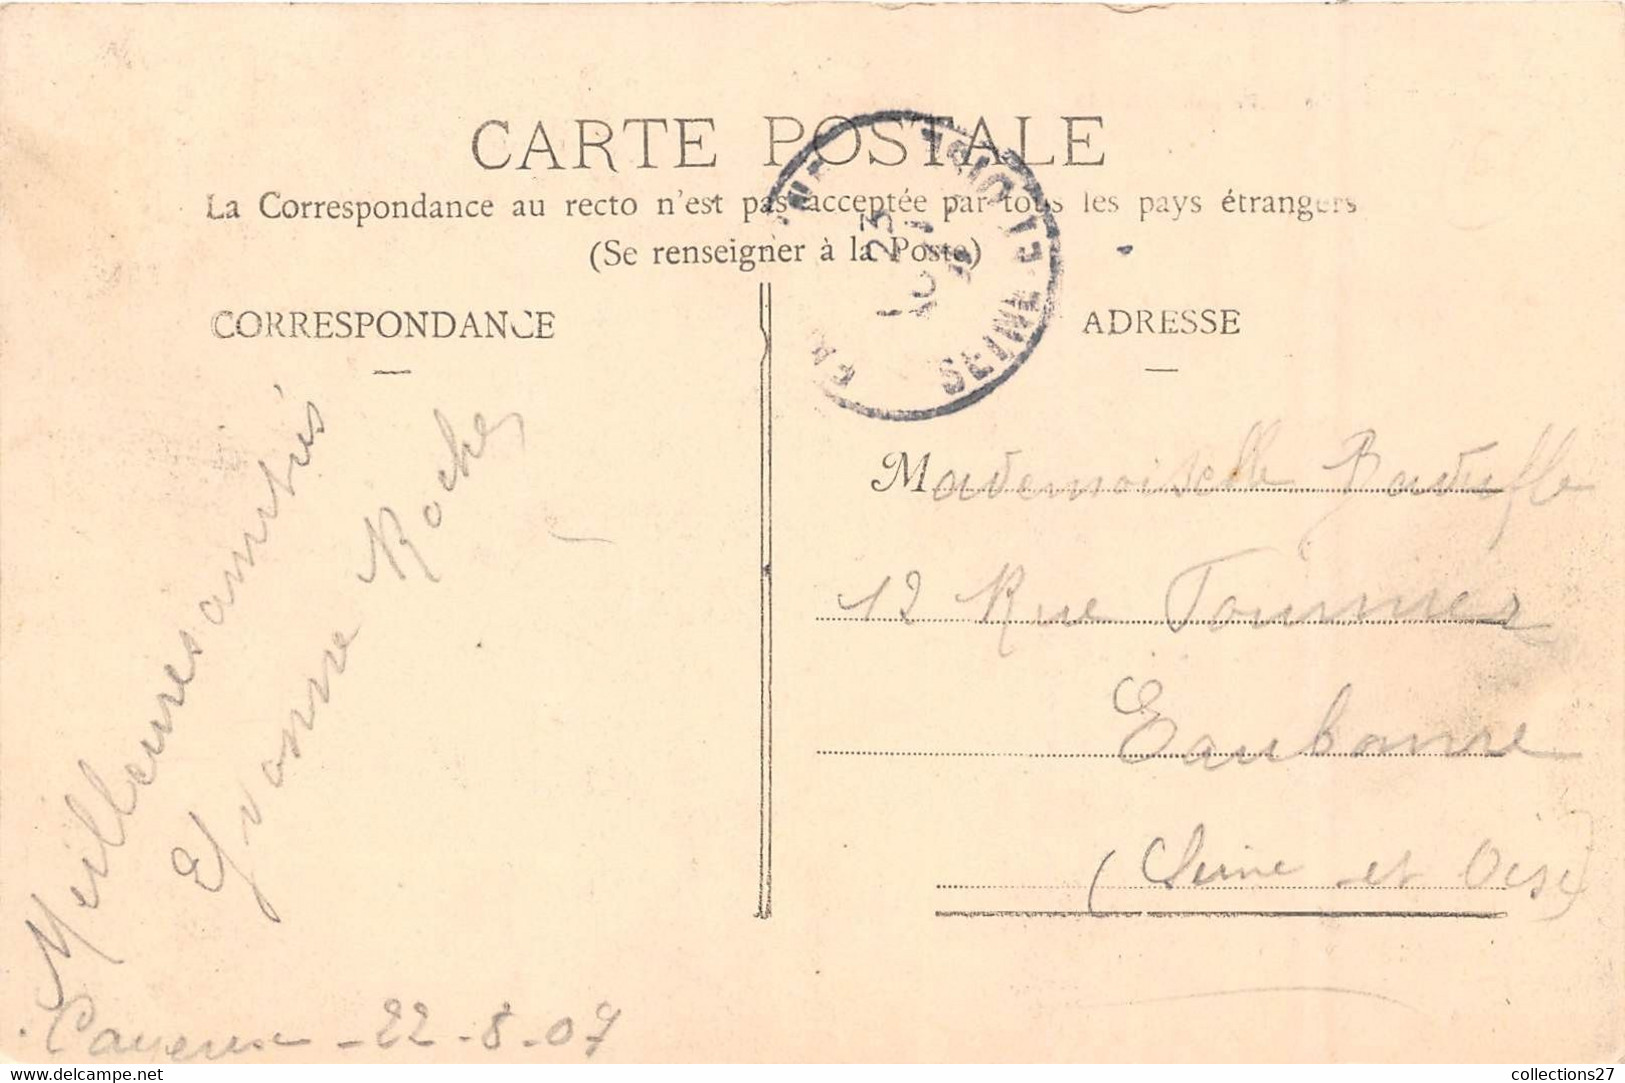 CARTE POSTALE
La Correspondance au recto n'est pas acceptée par tous les pays étrangers
(Se renseigner à la Poste)
CORRESPONDANCE
ADRESSE
Meilleures amitiés
Yvonne Roche
22-8-07
Mademoiselle
12 Rue Tournier
Eaubonne
(Seine et Oise)
23
SEINE
collections27